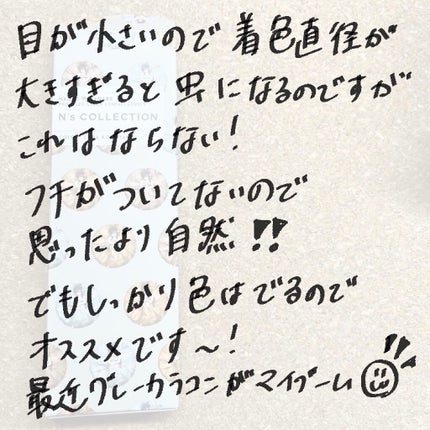 目が小さいので着色直径が
大きすぎると虫になるのですが
N's COLLECTION
これはならない!
フチがついてないので
思ったより自然!!
でもしっかり色はでるので
オススメです〜!
最近グレーカラコンがマイブーム